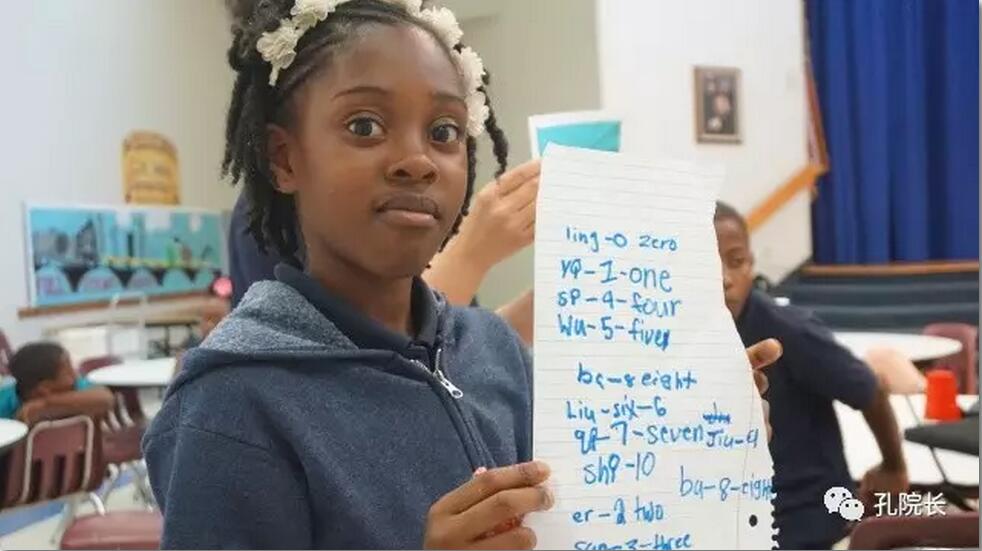 ling-0 zero
Yi-1-one
Si-4-four
Wu-5-five
ba-8 eight
Liu-six-6
qi-7-seven Jiu-9
Shi-10
ba-8-eight
er-2 two
san-3-three
孔院长